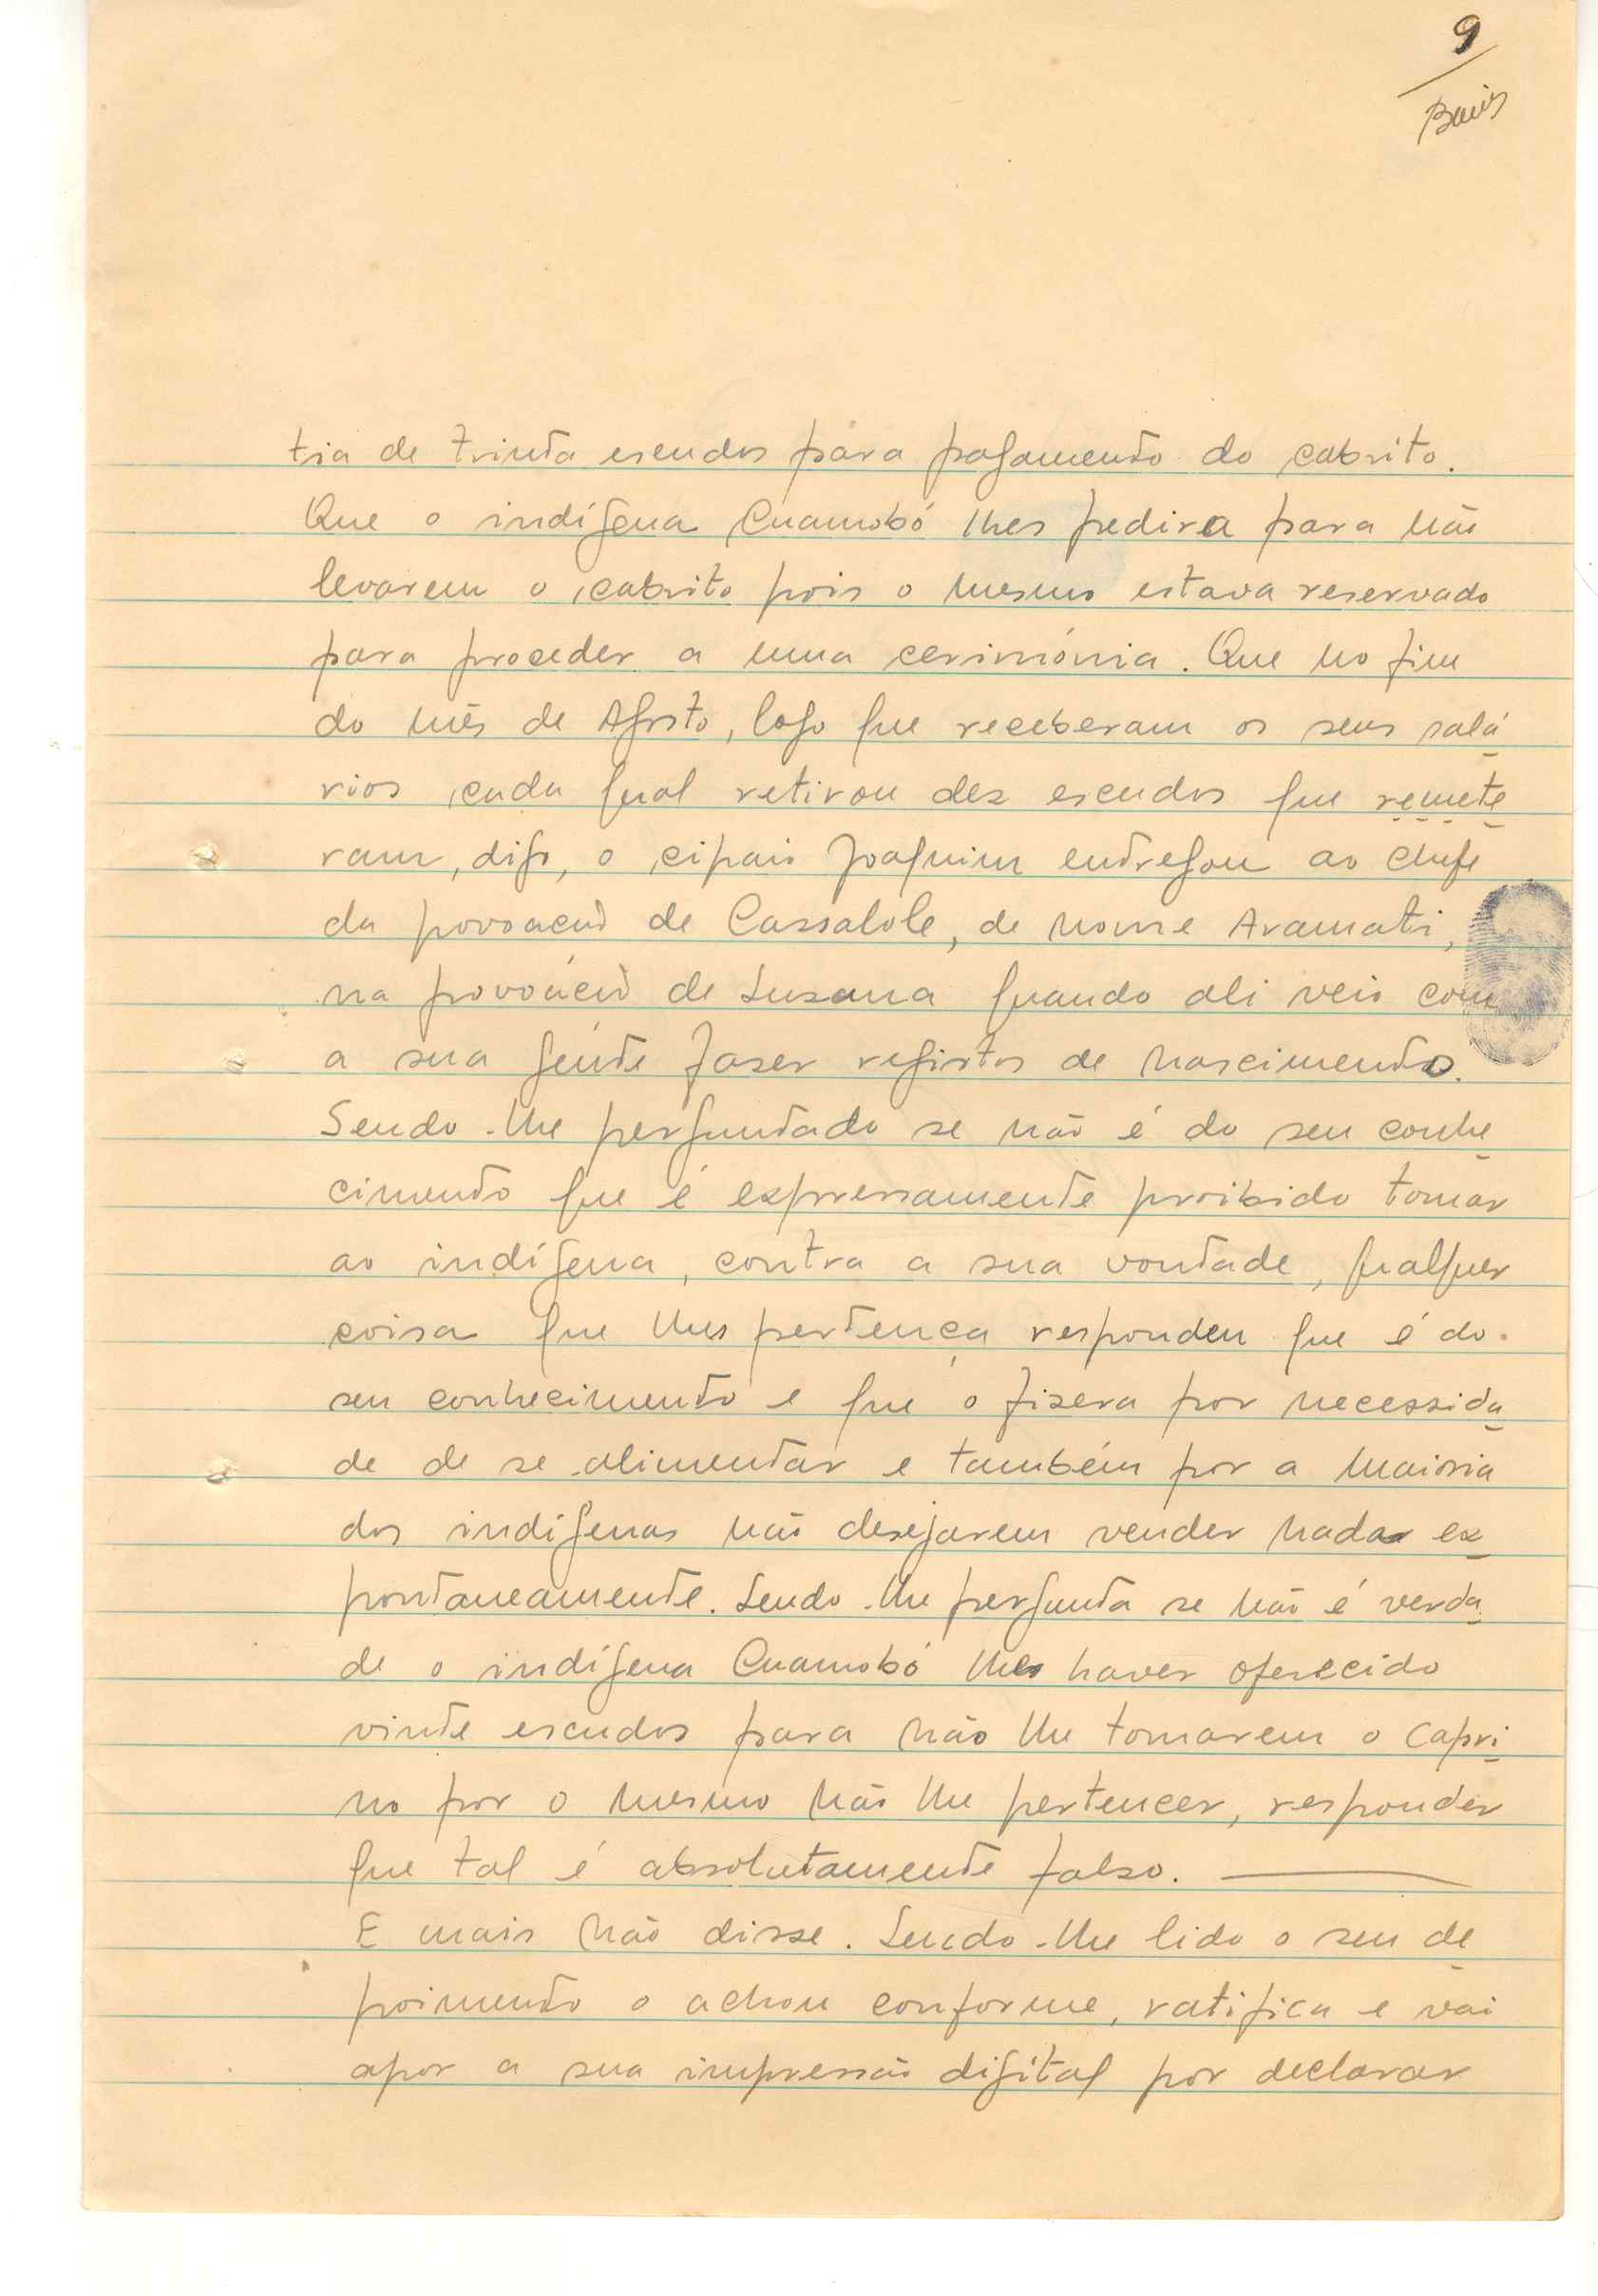 9
tia de trinta escudos para pagamento do cabrito.
Que o indígena Cuamobó lhes pedira para não
levarem o cabrito pois o mesmo estava reservado
para proceder a uma cerimónia. Que no fim
do mês de Agosto, logo que receberam os seus salá
rios cada qual retirou dez escudos que remete
ram, digo, o cipaio Joaquim entregou ao chefe
da povoação de Cassalole, de nome Aramati,
na povoação de Susana quando ali veio com
a sua gente fazer registos de nascimento.
Sendo-lhe perguntado se não é do seu conhe
cimento que é expressamente proibido tomar
ao indígena, contra a sua vontade, qualquer
coisa que lhes pertença respondeu que é do
seu conhecimento e que o fizera por necessida
de de se alimentar e também por a maioria
dos indígenas não desejarem vender nada ex
pontaneamente. Sendo-lhe pergunta se não é verda
de o indígena Cuamobó lhes haver oferecido
vinte escudos para não lhe tomarem o capri
no por o mesmo não lhe pertencer, responder
que tal é absolutamente falso.
E mais não disse. Sendo-lhe lido o seu de
poimento o achou conforme, ratifica e vai
apor a sua impressão digital por declarar